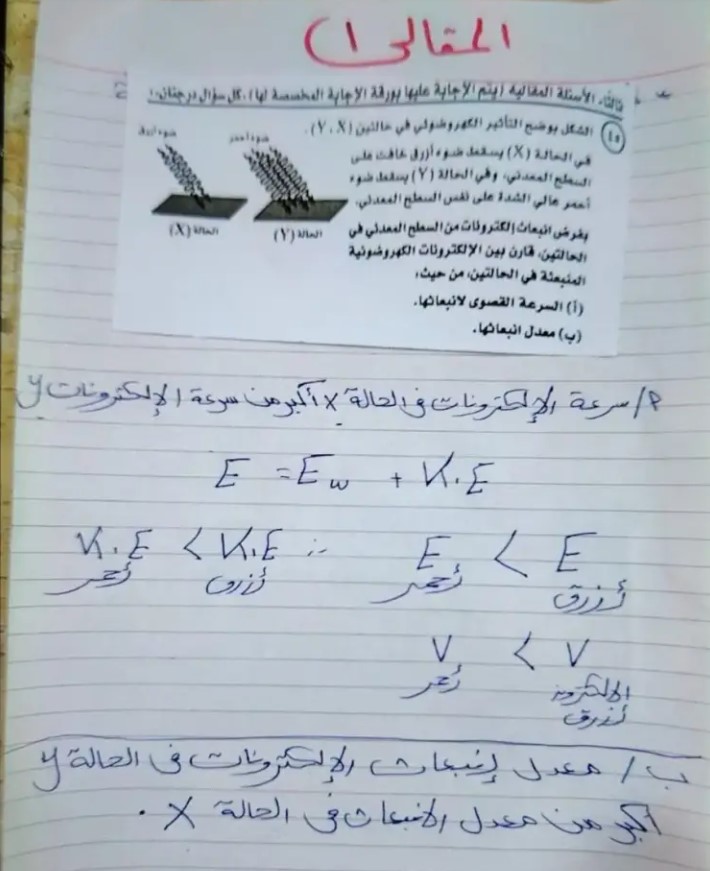 المقالى (1
ثالثًا، الأسئلة المقالية (يتم الإجابة عليها بورقة الإجابة المخصصة لها)، كل سؤال درجتان:
٤٥ الشكل يوضح التأثير الكهروضوئي في حالتين (Y ، X).
في الحالة (X) يسقط ضوء أزرق خافت على
السطح المعدني، وفي الحالة (Y) يسقط ضوء
أحمر عالي الشدة على نفس السطح المعدني.
بفرض انبعاث إلكترونات من السطح المعدني في
الحالتين، قارن بين الإلكترونات الكهروضوئية
المنبعثة في الحالتين، من حيث:
(أ) السرعة القصوى لانبعاثها.
(ب) معدل انبعاثها.
ضوء أحمر
ضوء أزرق
الحالة (Y)
الحالة (X)
٩/ سرعة الإلكترونات فى الحالة X أكبر من سرعة الإلكترونات y
E = Ew + K.E
E < E ∴ K.E < K.E
أزرق أحمر أزرق أحمر
V < V
الالكترون أحمر
أزرق
ب/ معدل إنبعاث الإلكترونات فى الحالة y
أكبر من معدل الانبعاث فى الحالة X .